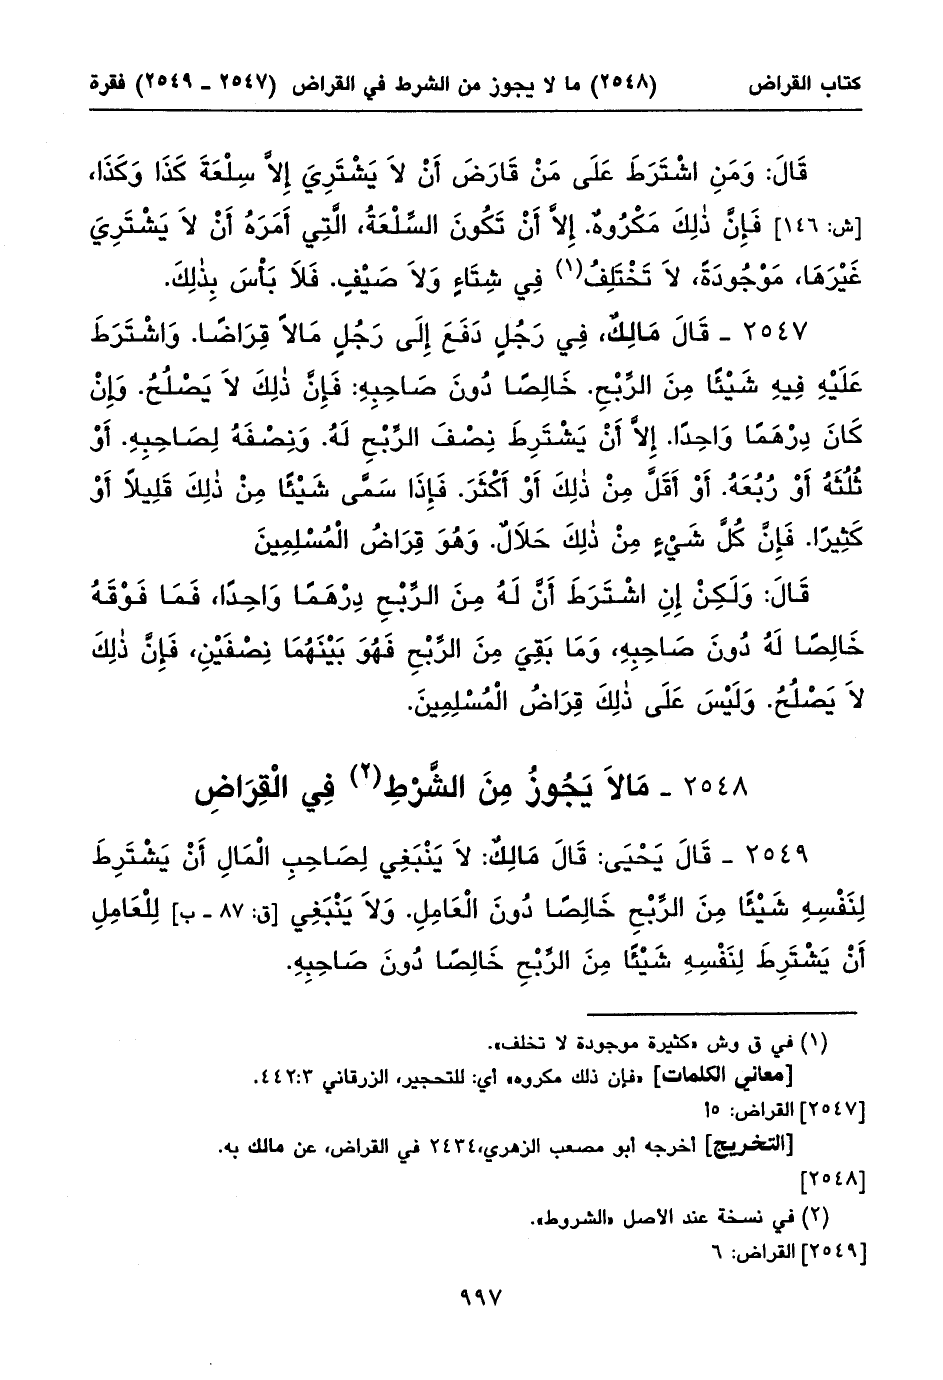 كتاب القراض (٢٥٤٨) ما لا يجوز من الشرط في القراض (٢٥٤٧ - ٢٥٤٩) فقرة
قَالَ: وَمَنِ اشْتَرَطَ عَلَى مَنْ قَارَضَ أَنْ لاَ يَشْتَرِيَ إِلاَّ سِلْعَةَ كَذَا وَكَذَا،
[ش: ١٤٦] فَإِنَّ ذٰلِكَ مَكْرُوهٌ. إِلاَّ أَنْ تَكُونَ السِّلْعَةُ، الَّتِي أَمَرَهُ أَنْ لاَ يَشْتَرِيَ
غَيْرَهَا، مَوْجُودَةً، لاَ تَخْتَلِفُ(١) فِي شِتَاءٍ وَلاَ صَيْفٍ. فَلاَ بَأْسَ بِذٰلِكَ.
٢٥٤٧ - قَالَ مَالِكٌ، فِي رَجُلٍ دَفَعَ إِلَى رَجُلٍ مَالاً قِرَاضًا. وَاشْتَرَطَ
عَلَيْهِ فِيهِ شَيْئًا مِنَ الرِّبْحِ. خَالِصًا دُونَ صَاحِبِهِ: فَإِنَّ ذٰلِكَ لاَ يَصْلُحُ. وَإِنْ
كَانَ دِرْهَمًا وَاحِدًا. إِلاَّ أَنْ يَشْتَرِطَ نِصْفَ الرِّبْحِ لَهُ. وَنِصْفَهُ لِصَاحِبِهِ. أَوْ
ثُلُثَهُ أَوْ رُبُعَهُ. أَوْ أَقَلَّ مِنْ ذٰلِكَ أَوْ أَكْثَرَ. فَإِذَا سَمَّى شَيْئًا مِنْ ذٰلِكَ قَلِيلاً أَوْ
كَثِيرًا. فَإِنَّ كُلَّ شَيْءٍ مِنْ ذٰلِكَ حَلاَلٌ. وَهُوَ قِرَاضُ الْمُسْلِمِينَ
قَالَ: وَلَكِنْ إِنِ اشْتَرَطَ أَنَّ لَهُ مِنَ الرِّبْحِ دِرْهَمًا وَاحِدًا، فَمَا فَوْقَهُ
خَالِصًا لَهُ دُونَ صَاحِبِهِ، وَمَا بَقِيَ مِنَ الرِّبْحِ فَهُوَ بَيْنَهُمَا نِصْفَيْنِ، فَإِنَّ ذٰلِكَ
لاَ يَصْلُحُ. وَلَيْسَ عَلَى ذٰلِكَ قِرَاضُ الْمُسْلِمِينَ.
٢٥٤٨ - مَالاَ يَجُوزُ مِنَ الشَّرْطِ(٢) فِي الْقِرَاضِ
٢٥٤٩ - قَالَ يَحْيَى: قَالَ مَالِكٌ: لاَ يَنْبَغِي لِصَاحِبِ الْمَالِ أَنْ يَشْتَرِطَ
لِنَفْسِهِ شَيْئًا مِنَ الرِّبْحِ خَالِصًا دُونَ الْعَامِلِ. وَلاَ يَنْبَغِي [ق: ٨٧ - ب] لِلْعَامِلِ
أَنْ يَشْتَرِطَ لِنَفْسِهِ شَيْئًا مِنَ الرِّبْحِ خَالِصًا دُونَ صَاحِبِهِ.
(١) في ق وش «كثيرة موجودة لا تخلف».
[معاني الكلمات] «فإن ذلك مكروه» أي: للتحجير، الزرقاني ٤٤٢:٣.
[٢٥٤٧] القراض: ٥أ
[التخريج] أخرجه أبو مصعب الزهري،٢٤٣٤ في القراض، عن مالك به.
[٢٥٤٨]
(٢) في نسخة عند الأصل «الشروط».
[٢٥٤٩] القراض: ٦
٩٩٧